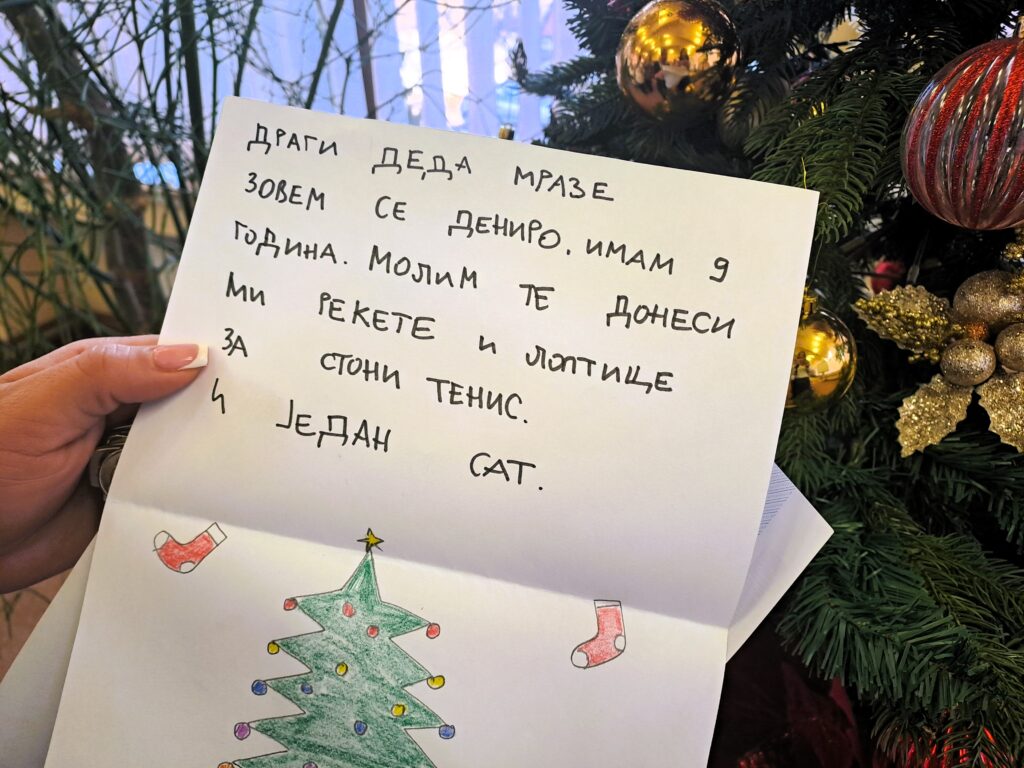 ДРАГИ ДЕДА МРАЗЕ
ЗОВЕМ СЕ ДЕНИРО. ИМАМ 9
ГОДИНА. МОЛИМ ТЕ ДОНЕСИ
МИ РЕКЕТЕ И ЛОПТИЦЕ
ЗА СТОНИ ТЕНИС.
И ЈЕДАН САТ.